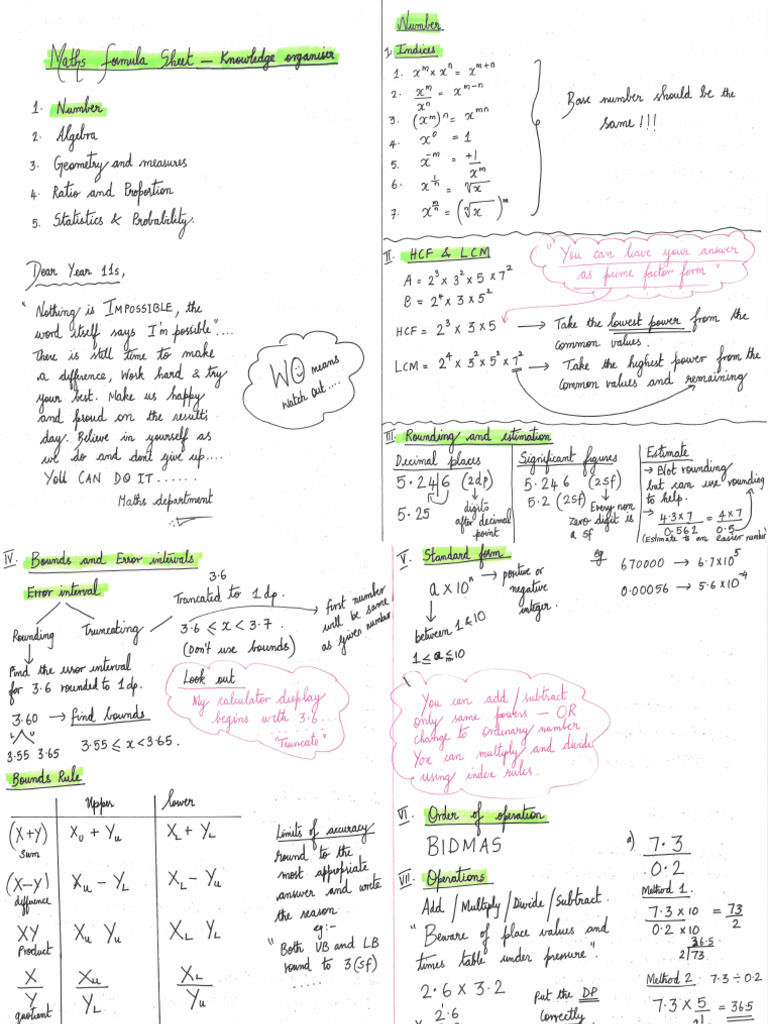 Maths Formula Sheet – Knowledge organiser
1. Number
2. Algebra
3. Geometry and measures
4. Ratio and Proportion
5. Statistics & Probability.
Dear Year 11s,
"Nothing is IMPOSSIBLE, the
word itself says I'm possible"....
There is still time to make
a difference, Work hard & try
your best. Make us happy
and proud on the results
day. Believe in yourself as
we do and don't give up....
YOU CAN DO IT ......
Maths department
WO means
Watch Out ....
Number
I. Indices
1. xᵐ × xⁿ = xᵐ⁺ⁿ
2. xᵐ/xⁿ = xᵐ⁻ⁿ
3. (xᵐ)ⁿ = xᵐⁿ
4. x⁰ = 1
5. x⁻ᵐ = +1/xᵐ
6. x^(1/n) = ⁿ√x
7. x^(m/n) = (ⁿ√x)ᵐ
Base number should be the
same !!!
II. HCF & LCM
"You can leave your answer
as prime factor form"
A = 2³ × 3² × 5 × 7²
B = 2⁴ × 3 × 5²
HCF = 2³ × 3 × 5 → Take the lowest power from the
common values.
LCM = 2⁴ × 3² × 5² × 7² → Take the highest power from the
common values and remaining
III. Rounding and estimation
Decimal places
5.24|6 (2dp)
5.25
digits
after decimal
point
Significant figures
5.246 (2sf)
5.2 (2sf)
Every non
zero digit is
a sf
Estimate
→ Not rounding
but can use rounding
to help.
→ 4.3×7/0.562 = 4×7/0.5
(Estimate to an easier number)
IV. Bounds and Error intervals
Error interval
Rounding
Truncating
Find the error interval
for 3.6 rounded to 1dp.
3.60 → find bounds
L U
3.55 3.65
3.55 ≤ x < 3.65.
3.6
Truncated to 1dp.
3.6 ≤ x < 3.7
(Don't use bounds)
first number
will be same
as given number
Look out
My calculator display
begins with 3.6...
"Truncate"
Bounds Rule
Upper lower
(X+Y) Xᵤ + Yᵤ X_L + Y_L
sum
(X–Y) Xᵤ – Y_L X_L – Yᵤ
difference
XY Xᵤ Yᵤ X_L Y_L
Product
X/Y Xᵤ/Y_L X_L/Yᵤ
quotient
Limits of accuracy
round to the
most appropriate
answer and write
the reason
eg:-
"Both UB and LB
round to 3(sf)
.....
V. Standard form
a × 10ⁿ → positive or
negative
integer.
between 1 & 10
1 ≤ a ≤ 10
eg 670000 → 6.7×10⁵
0.00056 → 5.6×10⁻⁴
You can add / subtract
only same powers – OR
change to ordinary number
You can multiply and divide
using index rules.
VI. Order of operation
BIDMAS
VII. Operations
Add / Multiply / Divide / Subtract.
"Beware of place values and
times table under pressure".
2.6 × 3.2
Put the DP
correctly
a) 7.3/0.2
Method 1.
7.3 × 10/0.2 × 10 = 73/2
36.5
2⟌73.
Method 2 7.3 ÷ 0.2
7.3 × 5 = 36.5